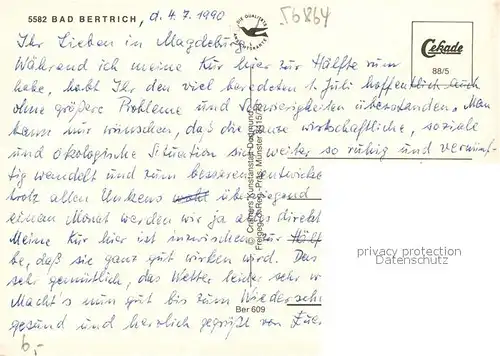 5582 BAD BERTRICH, d. 4.7.1990
56864
DIE QUALITÄTS
ANSICHTSKARTE
Cekade
88/5
Ihr Lieben in Magdeburg,
Während ich meine Kur hier zur Hälfte rum
habe, habt Ihr den viel beredeten 1. Juli hoffentlich auch
ohne größere Probleme und Schwierigkeiten überstanden. Man
kann nur wünschen, daß die ganze wirtschaftliche, soziale
und ökologische Situation sich weiter so ruhig und vernünf-
tig wandelt und zum besseren entwickelt
trotz allen Unkens überwiegend
einen Monat werden wir ja alles direkt
Meine Kur hier ist inzwischen zur Hälf
be, daß sie ganz gut wirken wird. Das
sehr gemütlich, das Wetter leider sehr w
Macht's nun gut bis zum Wiederseh
gesund und herzlich gegrüßt von Eue
© Cramers Kunstanstalt Dortmund
Freigeg. d. Reg.-Präs. Münster
Ber 609
privacy protection
Datenschutz
6,-